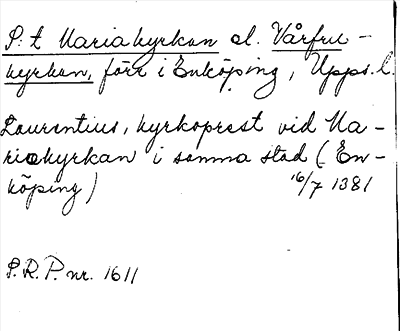 S:t Mariakyrkan el. Vårfru-
kyrkan, förr i Enköping, Upps. l.
Laurentius, kyrkoprest vid Ma-
riakyrkan i samma stad (En-
köping) 16/7 1381
S.R.P. nr. 1611